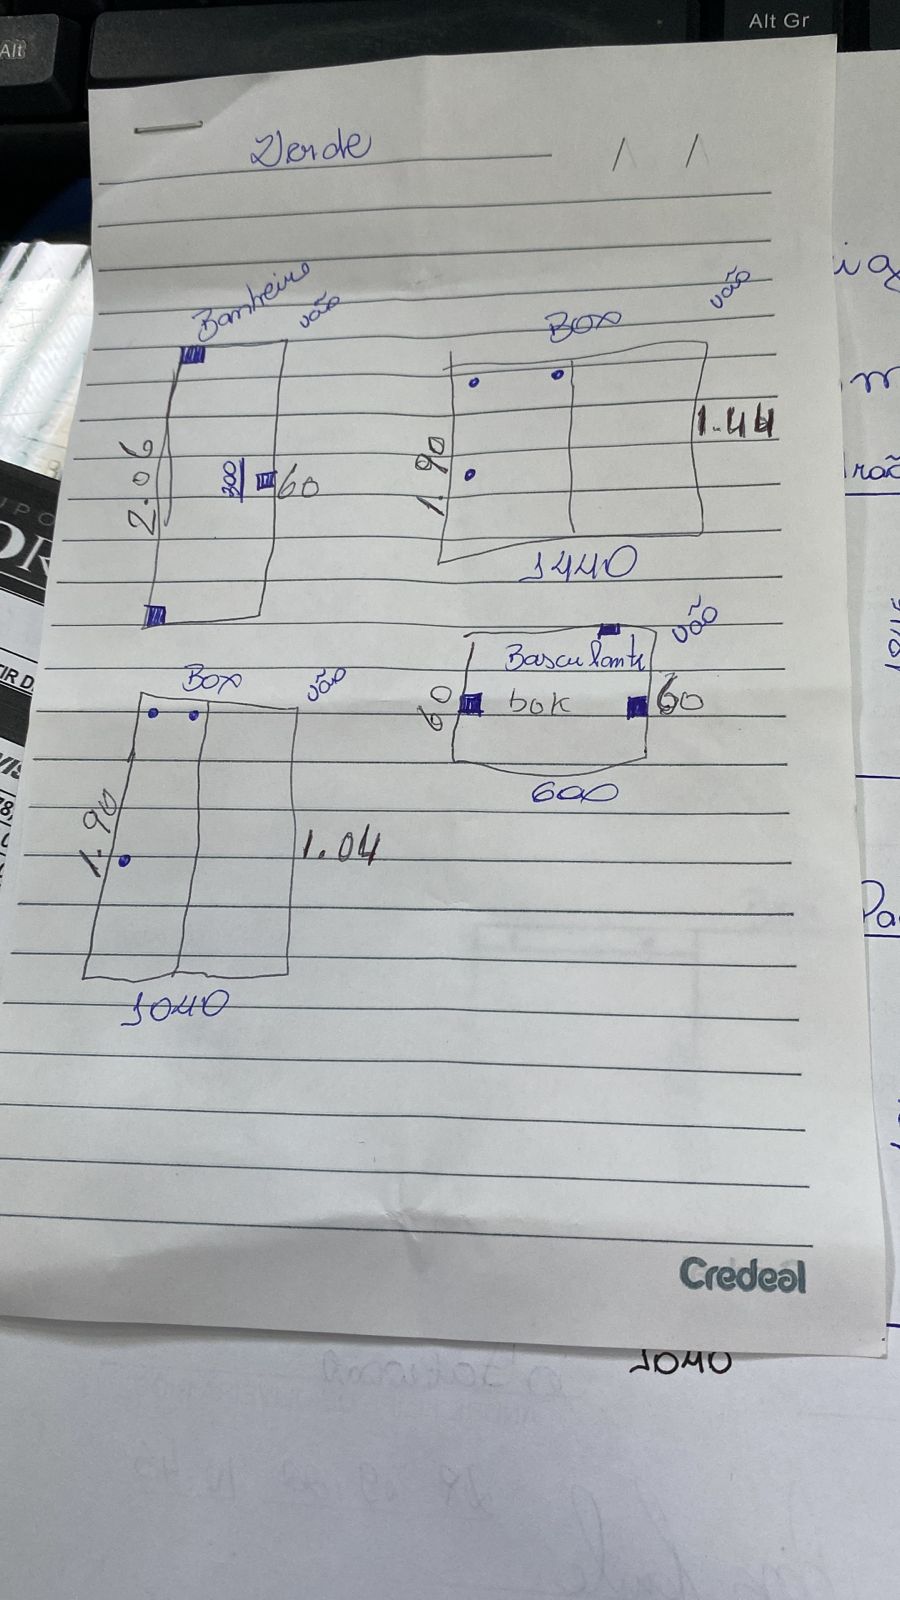 Alt
Alt Gr
Verde
Banheiro
vão
2.06
300
60
BOX
vão
1.90
1.44
1440
BOX
vão
1.90
1.04
1040
vão
Basculante
60
box
60
600
Credeal
1040